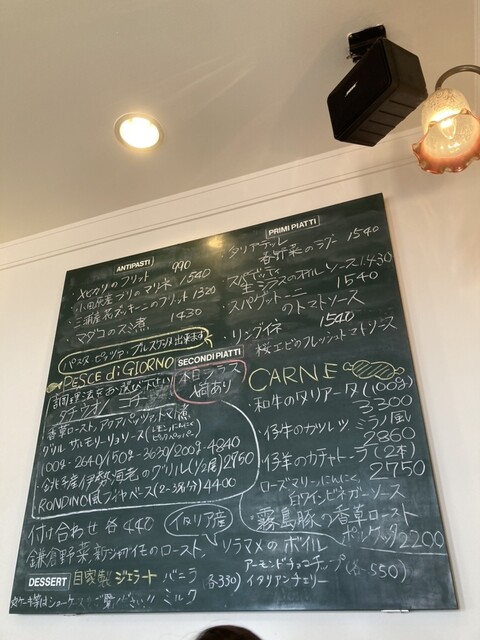 ANTIPASTI
・メヒカリのフリット 990
・小田原産ブリのマリネ 1540
・三浦産花ズッキーニのフリット 1320
・マダコのスミ煮 1430
PRIMI PIATTI
・タリアテッレ
春野菜のラグー 1540
・スパゲッティ
生シラスのオイルソース 1430
・スパゲットーニ
のトマトソース 1540
・リングイネ 1540
桜エビのフレッシュトマトソース
パスタ ピッツァ・ブレスケッタ出来ます
SECONDI PIATTI
PESCE di GIORNO
本日シラス
入荷あり
調理法をお選び下さい
タチウオ コチ
・香草ロースト,アクアパッツァ,トマト煮
・グリル サルモリーリョソース
100g-2640/150g-3630/200g-4840
・銚子産伊勢海老のグリル(1/2尾) 2750
RONDINO風ブイヤベース(2~3名分) 4400
CARNE
・和牛のタリアータ(100g)
3300
・仔牛のカツレツ ミラノ風
2860
・仔羊のカチャトーラ(2本)
2750
ローズマリー,にんにく,
白ワインビネガーソース
・霧島豚の香草ロースト
ポルケッタ 2200
付け合わせ 各440
鎌倉野菜,新ジャガイモのロースト,
イタリア産
ソラマメのボイル
DESSERT
自家製 ジェラート
バニラ
ミルク
各330)
アーモンドチョコチップ(各-550)
イタリアンチェリー